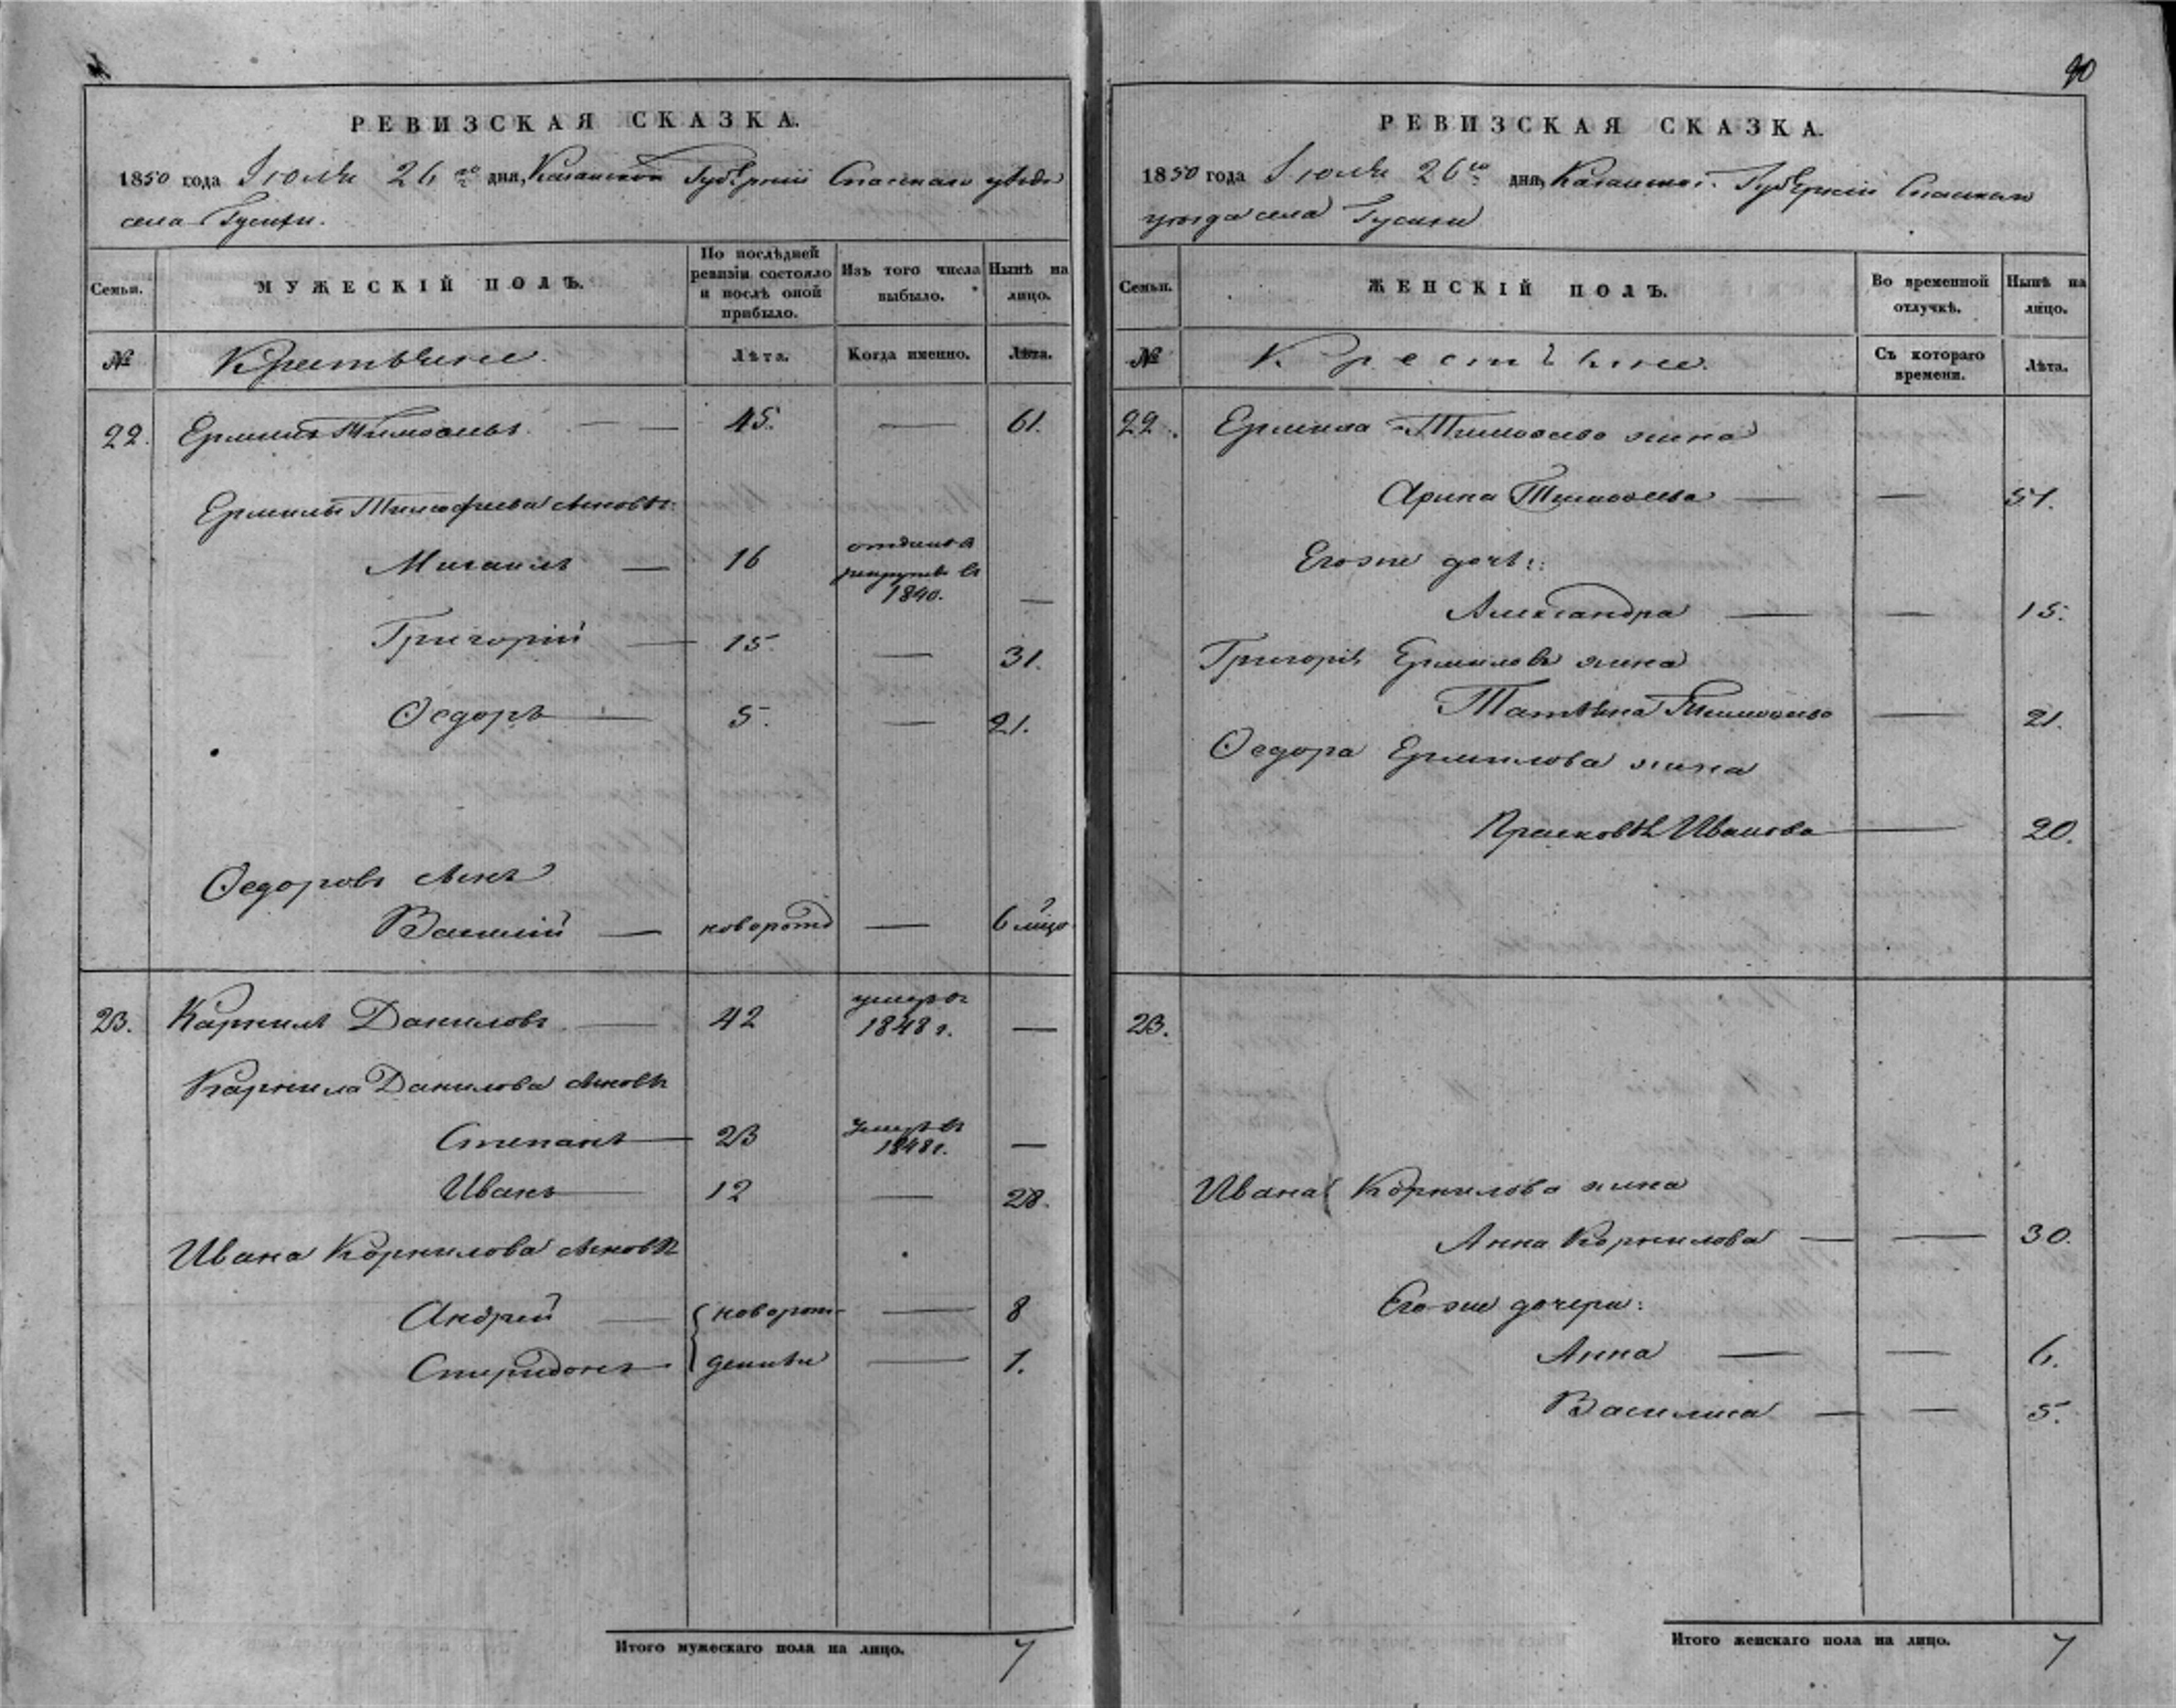 90
РЕВИЗСКАЯ СКАЗКА.
1850 года Іюля 26го дня, Казанской Губерніи Спаскаго уѣзда
села Гусихи.
Семьи.
МУЖЕСКІЙ ПОЛЪ.
По послѣдней ревизіи состояло и послѣ оной прибыло.
Изъ того числа выбыло.
Нынѣ на лицо.
№
Крестьяне
Лѣта.
Когда именно.
Лѣта.
22. Ермилъ Тимоѳеевъ. — 45. — 61.
Ермилы Тимофеева сыновья:
Михаилъ — 16 отданъ в рекруты въ 1840. —
Григорій — 15 — 31.
Ѳедоръ — 5. — 21.
Ѳедоровъ сынъ
Василій — новорожд — 6 мѣцо
23. Карнилъ Даниловъ — 42 умеръ в 1848 г. —
Карнила Данилова сыновья
Степанъ — 23 умеръ въ 1848 г. —
Иванъ — 12 — 28.
Ивана Корнилова сыновья
Андрей — { новорож- — 8
Спиридонъ — денные — 1.
Итого мужескаго пола на лицо. 7
РЕВИЗСКАЯ СКАЗКА.
1850 года Іюля 26го дня, Казанской Губерніи Спаскаго
уѣзда села Гусихи
Семьи.
ЖЕНСКІЙ ПОЛЪ.
Во временной отлучкѣ.
Нынѣ на лицо.
№
Крестьяне.
Съ котораго времени.
Лѣта.
22. Ермила Тимоѳеева жена
Арина Тимоѳеева — — 51.
Его же дочь:
Александра — — 15.
Григорія Ермилова жена
Татьяна Тимоѳеева — 21.
Ѳедора Ермилова жена
Прасковья Иванова — 20.
23.
Ивана Корнилова жена
Анна Корнилова — — 30.
Его же дочери:
Анна — — 6.
Василиса — — 5.
Итого женскаго пола на лицо. 7